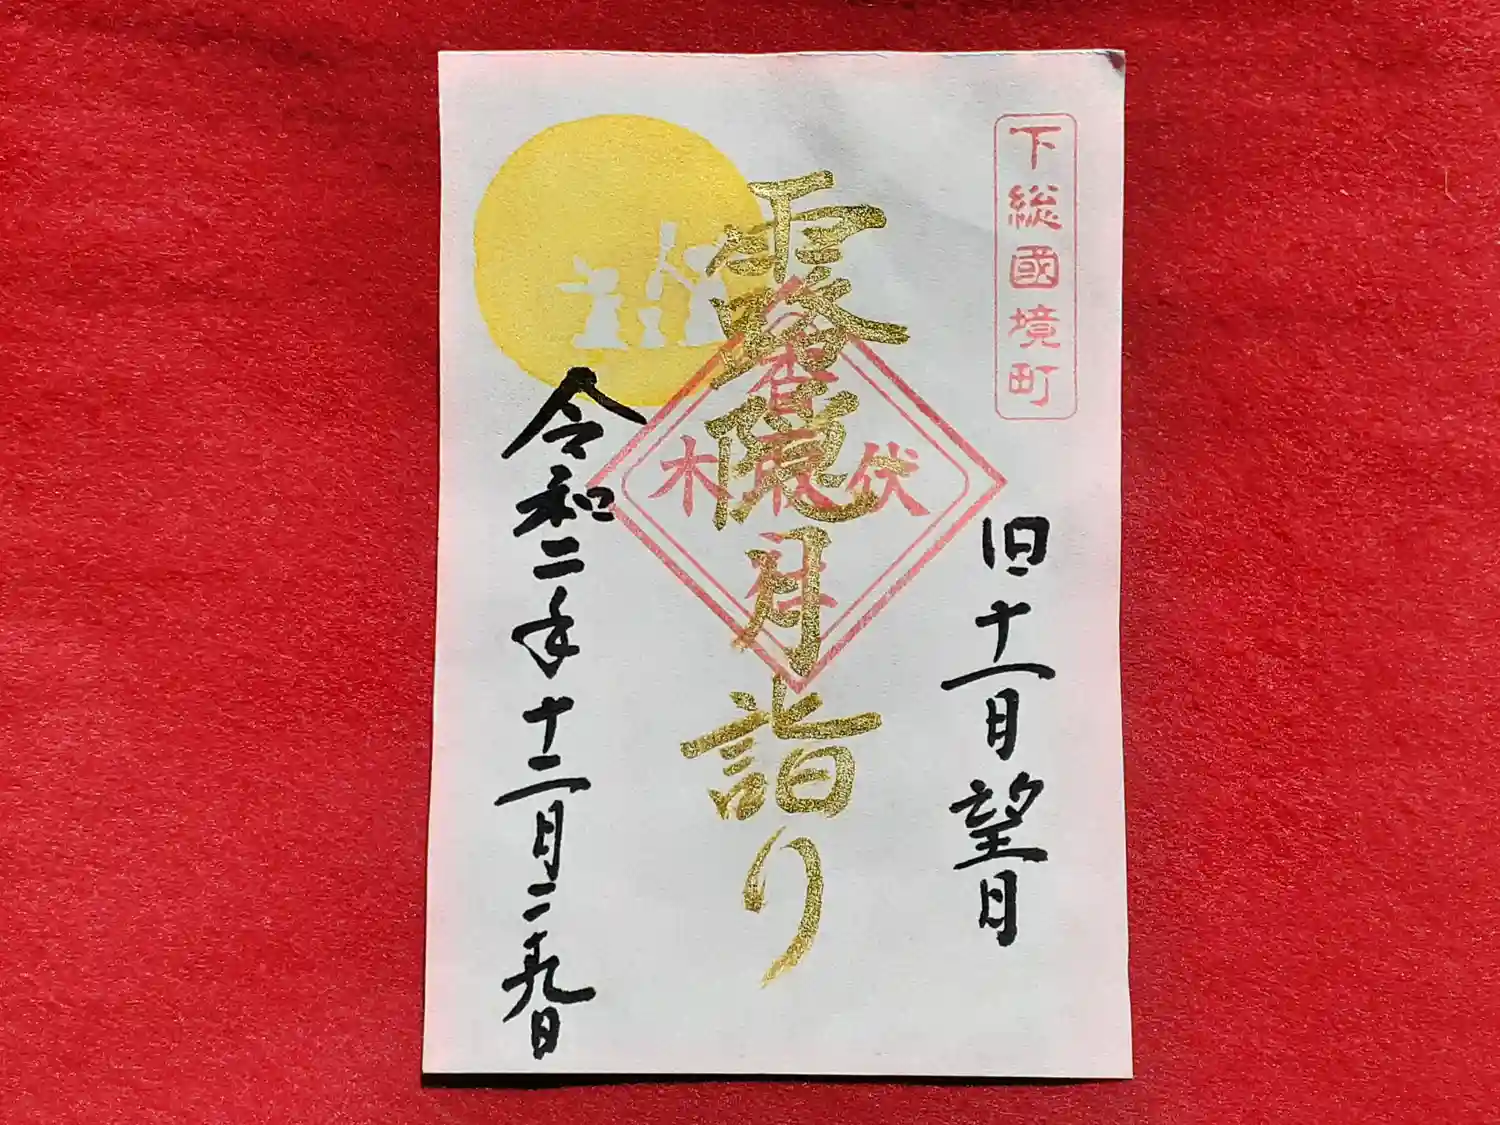 下総國境町
旧十一月望日
露隠月詣り
伏木
香取社
令和二年十二月二十九日